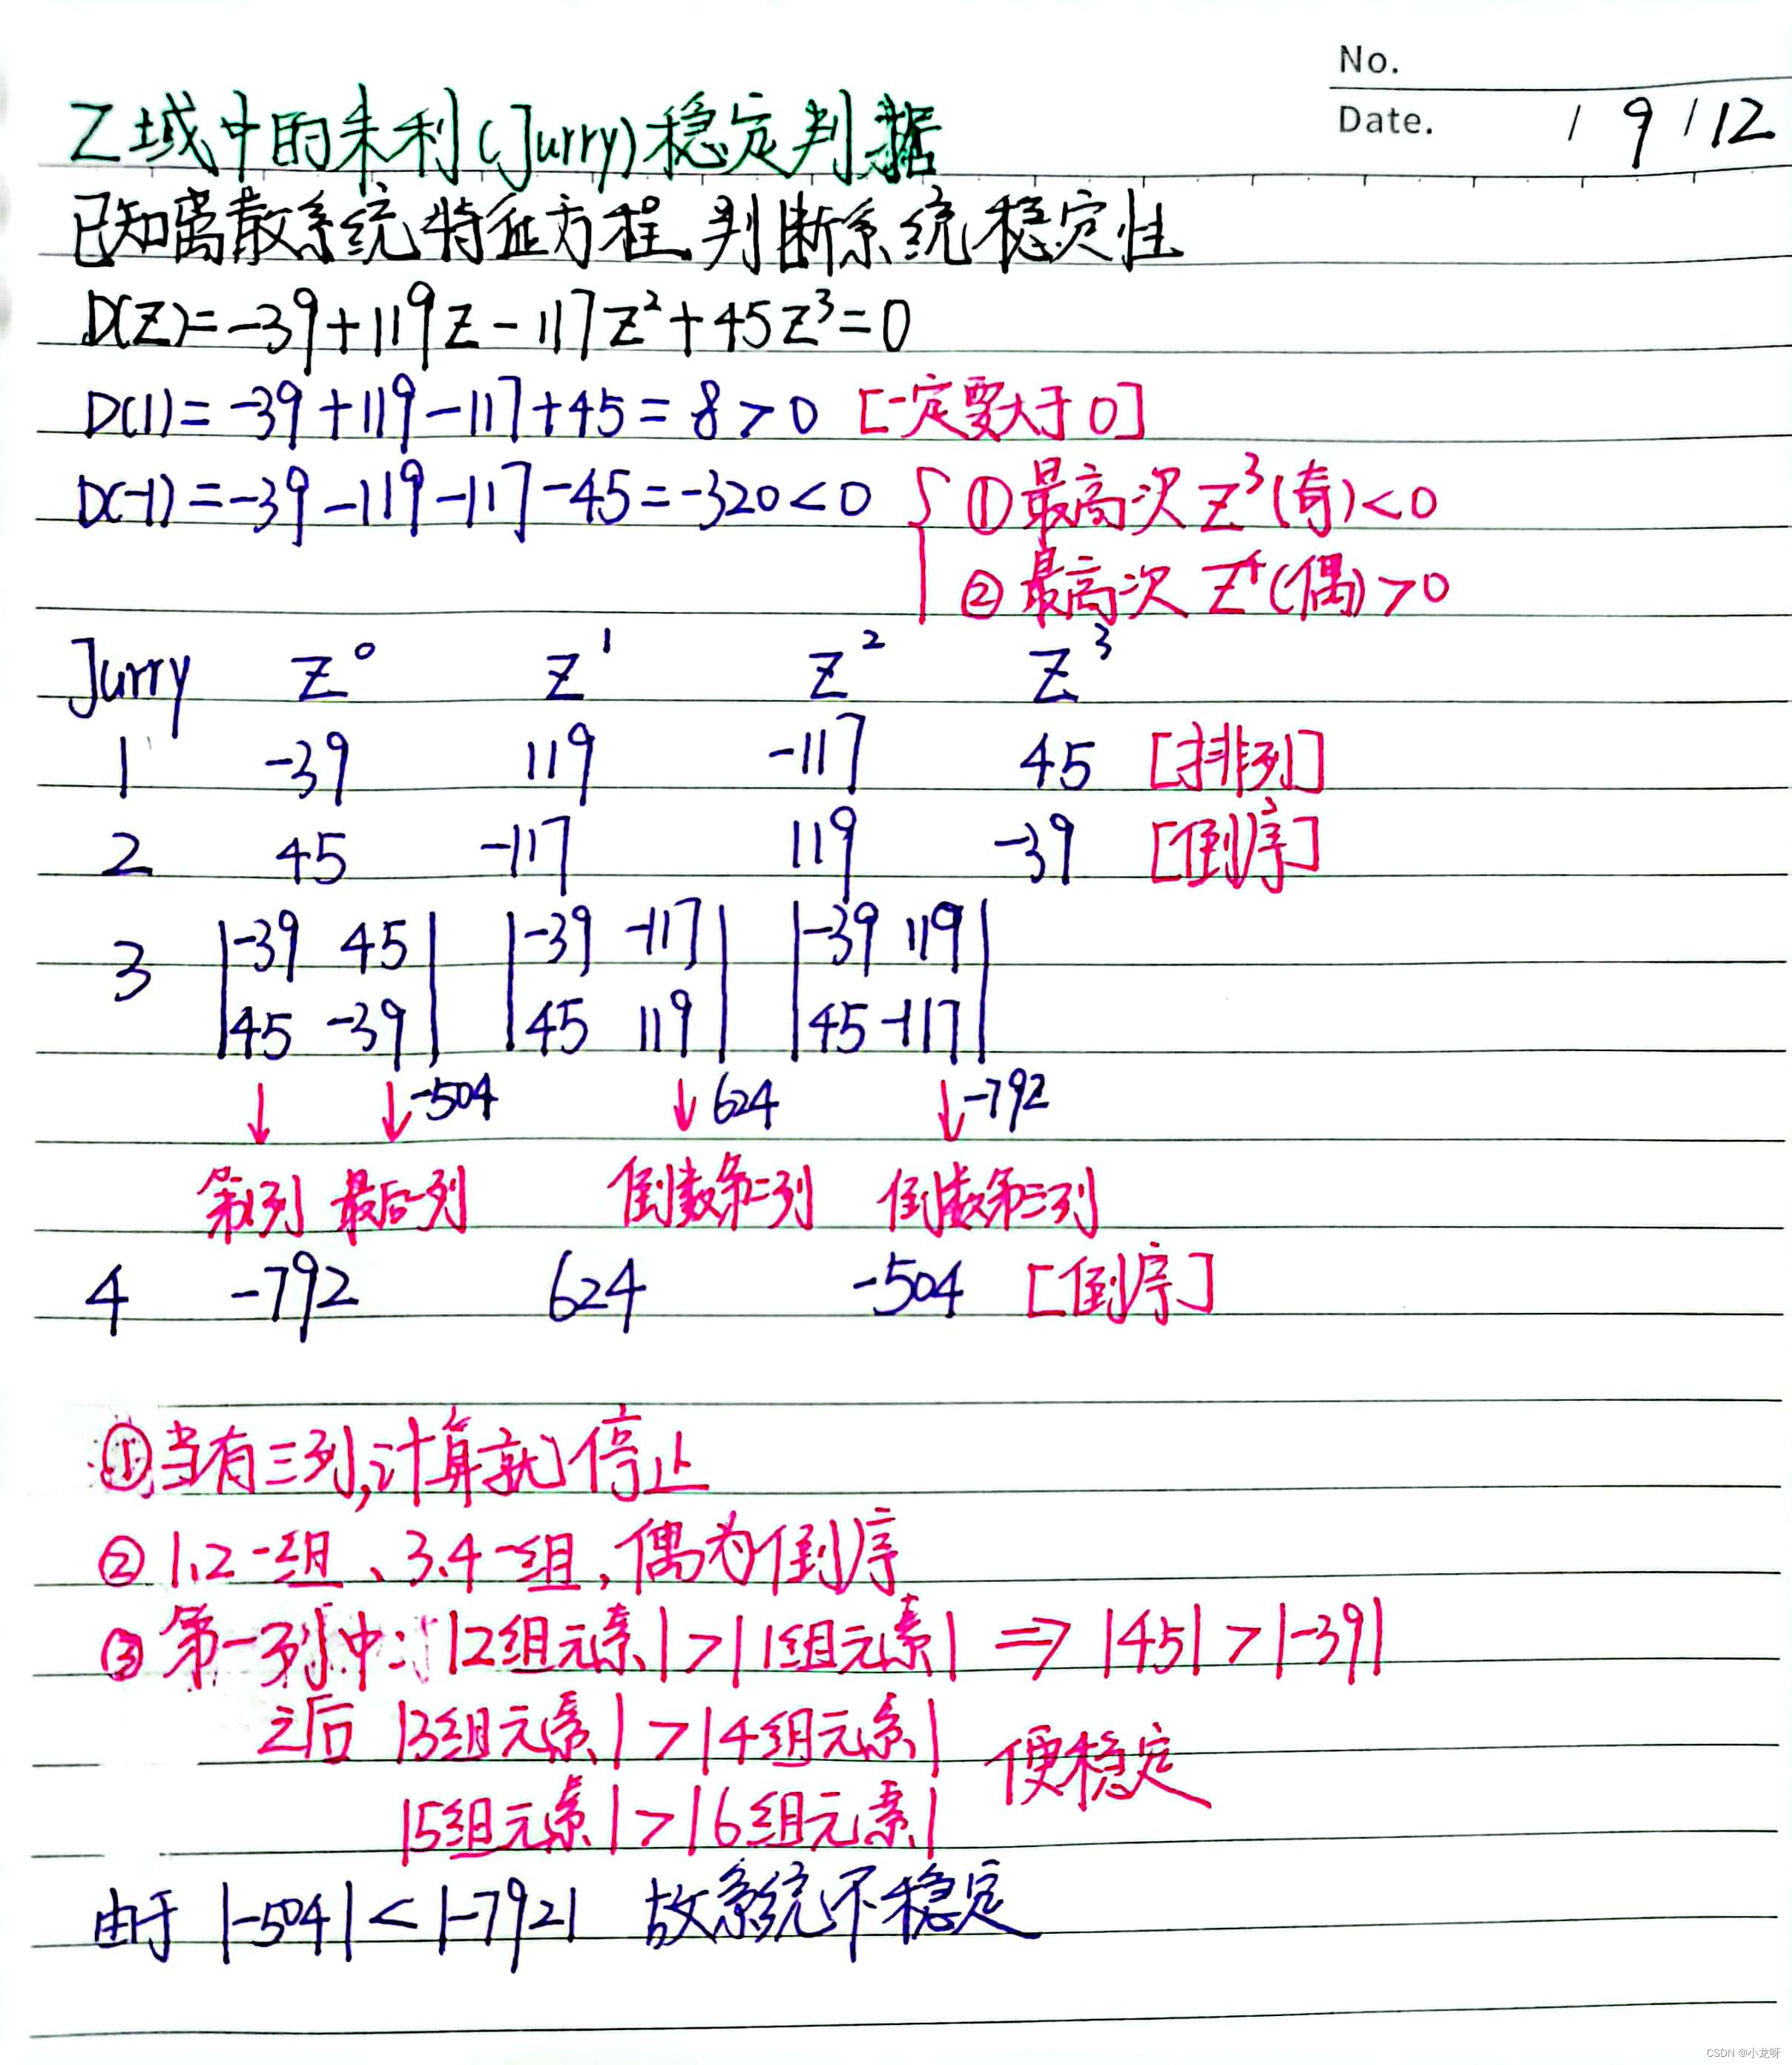 No.
Date. / 9 / 12
Z域中的朱利(Jurry)稳定判据
已知离散系统特征方程,判断系统稳定性
D(Z)=-39+119Z-117Z²+45Z³=0
D(1)=-39+119-117+45=8>0 [一定要大于0]
D(-1)=-39-119-117-45=-320<0 { ①最高次Z³(奇)<0
②最高次Z⁴(偶)>0
Jurry Z⁰ Z¹ Z² Z³
1 -39 119 -117 45 [排列]
2 45 -117 119 -39 [倒序]
3 |-39 45| |-39 -117| |-39 119|
|45 -39| |45 119| |45 -117|
↓ ↓-504 ↓624 ↓-792
第1列 最后一列 倒数第二列 倒数第三列
4 -792 624 -504 [倒序]
①当有三列,计算就停止
②1.2一组、3.4一组,偶为倒序
③第一列中:|2组元素|>|1组元素| ⇒ |45|>|-39|
之后 |3组元素|>|4组元素| 便稳定
|5组元素|>|6组元素|
由于 |-504|<|-792| 故系统不稳定
CSDN @小龙呀